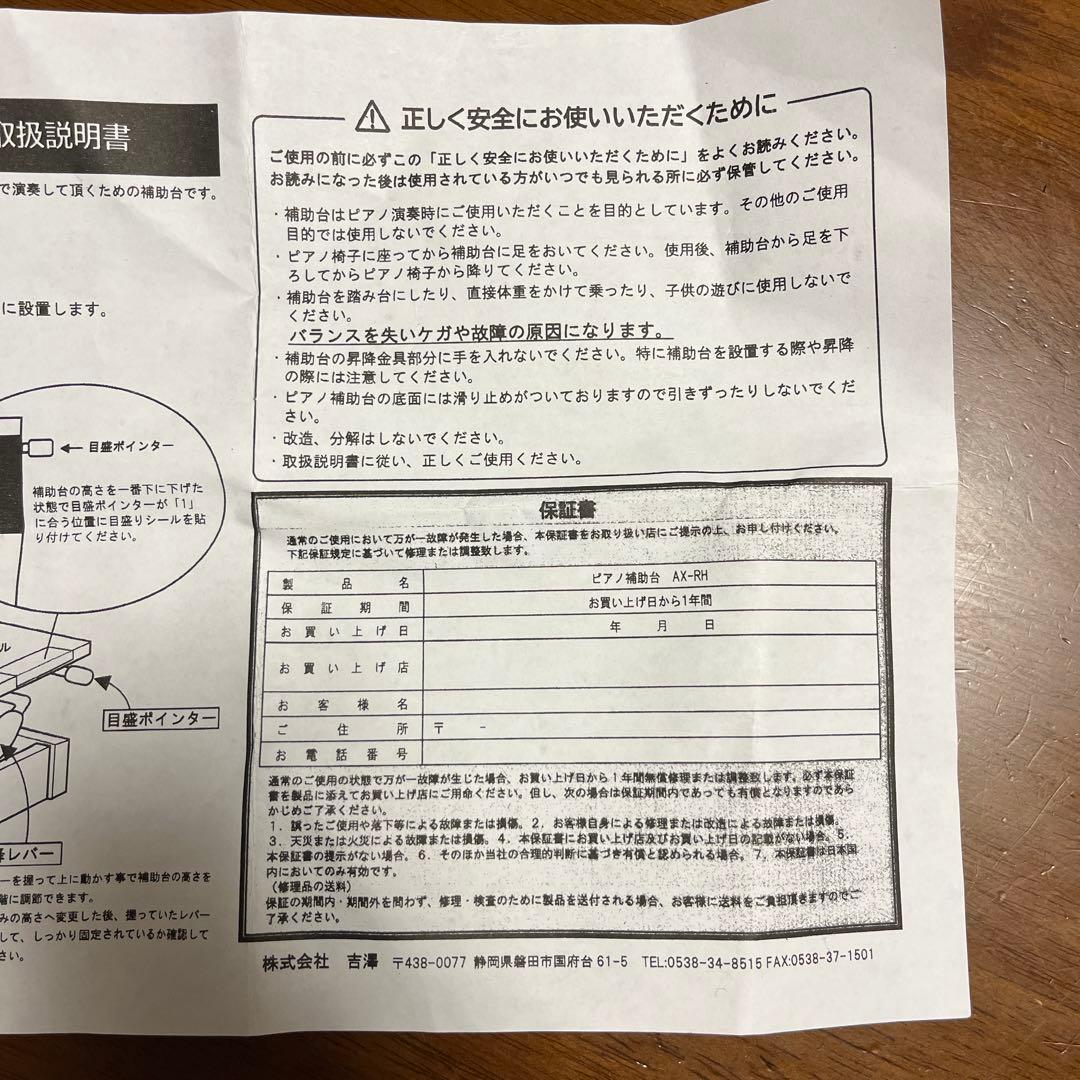 取扱説明書
で演奏して頂くための補助台です。
に設置します。
目盛ポインター
補助台の高さを一番下に下げた
状態で目盛ポインターが「1」
に合う位置に目盛りシールを貼
り付けてください。
ル
目盛ポインター
レバー
ーを握って上に動かす事で補助台の高さを
階に調節できます。
みの高さへ変更した後、握っていたレバー
して、しっかり固定されているか確認して
さい。
⚠ 正しく安全にお使いいただくために
ご使用の前に必ずこの「正しく安全にお使いいただくために」をよくお読みください。
お読みになった後は使用されている方がいつでも見られる所に必ず保管してください。
・補助台はピアノ演奏時にご使用いただくことを目的としています。その他のご使用
目的では使用しないでください。
・ピアノ椅子に座ってから補助台に足をおいてください。使用後、補助台から足を下
ろしてからピアノ椅子から降りてください。
・補助台を踏み台にしたり、直接体重をかけて乗ったり、子供の遊びに使用しないで
ください。
バランスを失いケガや故障の原因になります。
・補助台の昇降金具部分に手を入れないでください。特に補助台を設置する際や昇降
の際には注意してください。
・ピアノ補助台の底面には滑り止めがついておりますので引きずったりしないでくだ
さい。
・改造、分解はしないでください。
・取扱説明書に従い、正しくご使用ください。
保証書
通常のご使用において万が一故障が発生した場合、本保証書をお取り扱い店にご提示の上、お申し付けください。
下記保証規定に基づいて修理または調整致します。
製品名 ピアノ補助台 AX-RH
保証期間 お買い上げ日から1年間
お買い上げ日 年 月 日
お買い上げ店
お客様名
ご住所 〒 -
お電話番号
通常のご使用の状態で万が一故障が生じた場合、お買い上げ日から1年間無償修理または調整致します。必ず本保証
書を製品に添えてお買い上げ店にご用命ください。但し、次の場合は保証期間内であっても有償となりますのであら
かじめご了承ください。
1．誤ったご使用や落下等による故障または損傷。2．お客様自身による修理または改造による故障または損傷。
3．天災または火災による故障または損傷。4．本保証書にお買い上げ店及びお買い上げ日の記載がない場合。5．
本保証書の提示がない場合。6．そのほか当社の合理的判断に基づき有償と認められる場合。7．本保証書は日本国
内においてのみ有効です。
（修理品の送料）
保証の期間内・期間外を問わず、修理・検査のために製品を送付される場合、お客様に送料をご負担頂きますのでご
了承ください。
株式会社 吉澤 〒438-0077 静岡県磐田市国府台 61-5 TEL:0538-34-8515 FAX:0538-37-1501